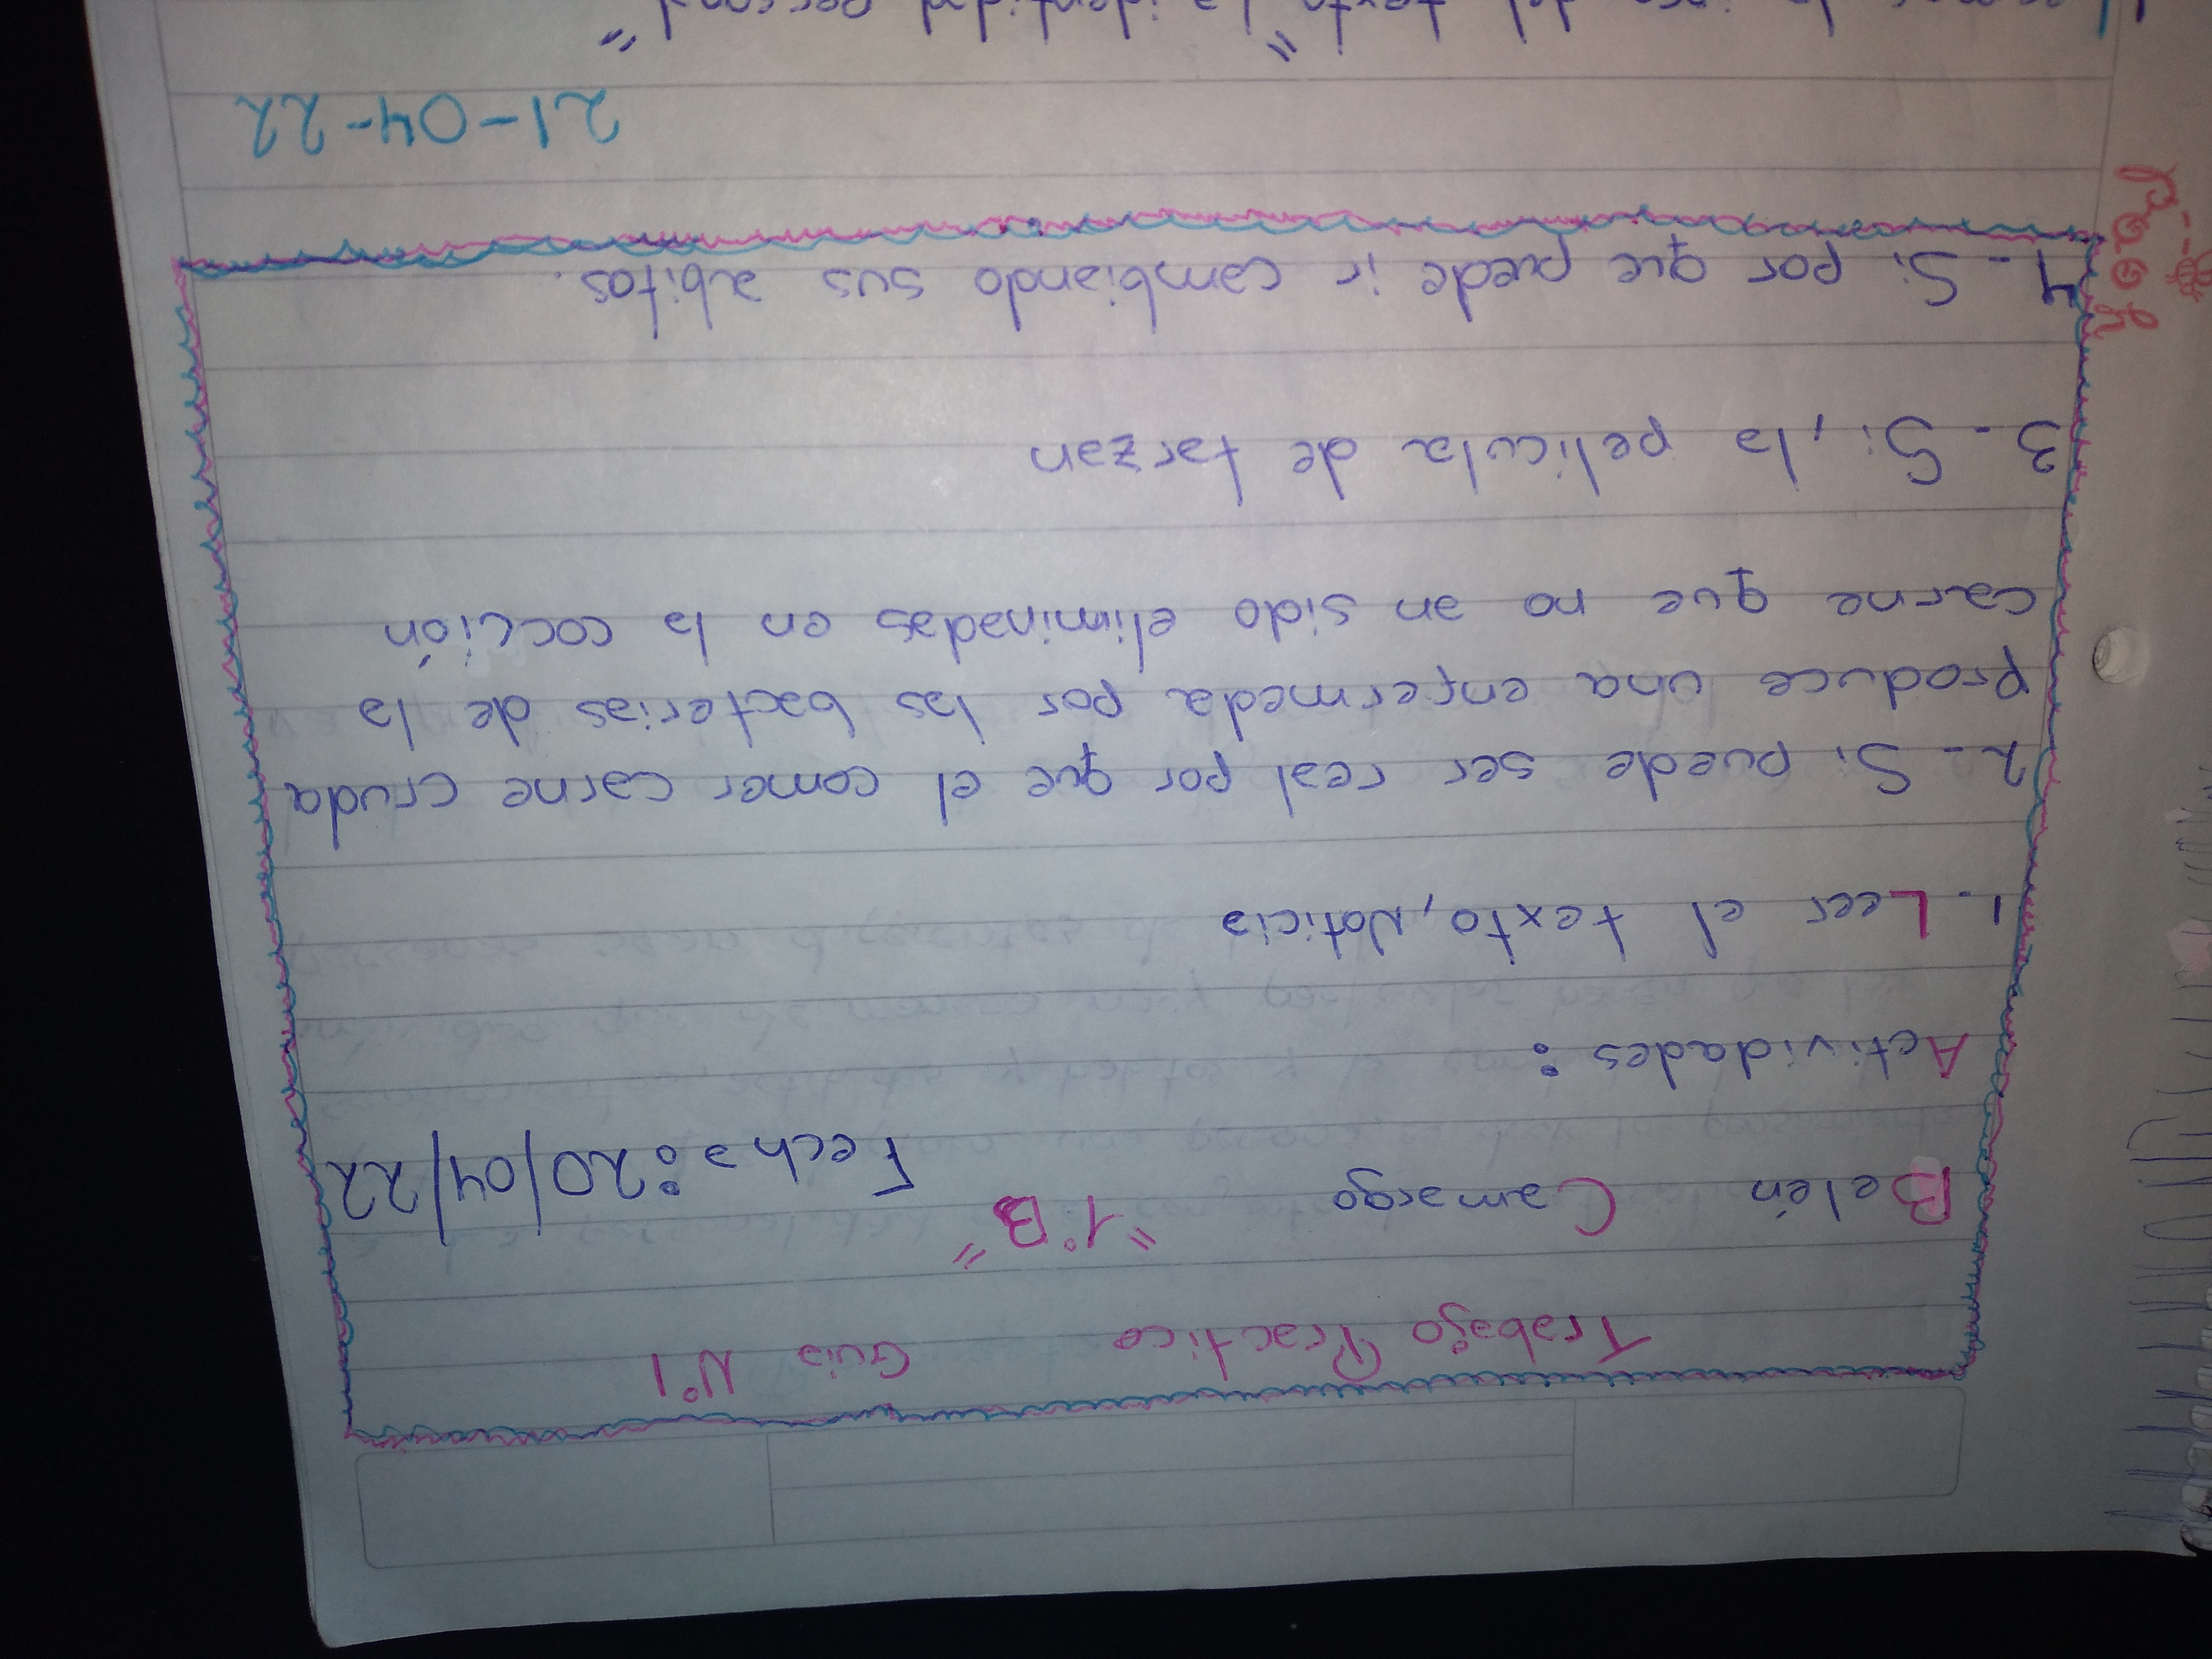 Trabajo Practico Guia N°1
Belén Camargo "1°B" Fecha: 20/04/22
Actividades:
1- Leer el texto, Noticia
2- Si puede ser real por que el comer carne cruda
produce una enfermeda por las bacterias de la
carne que no an sido eliminadas en la cocción
3- Si, la pelicula de tarzan
4- Si por que puede ir cambiando sus abitos.
21-04-22
del texto "la identidad personal"